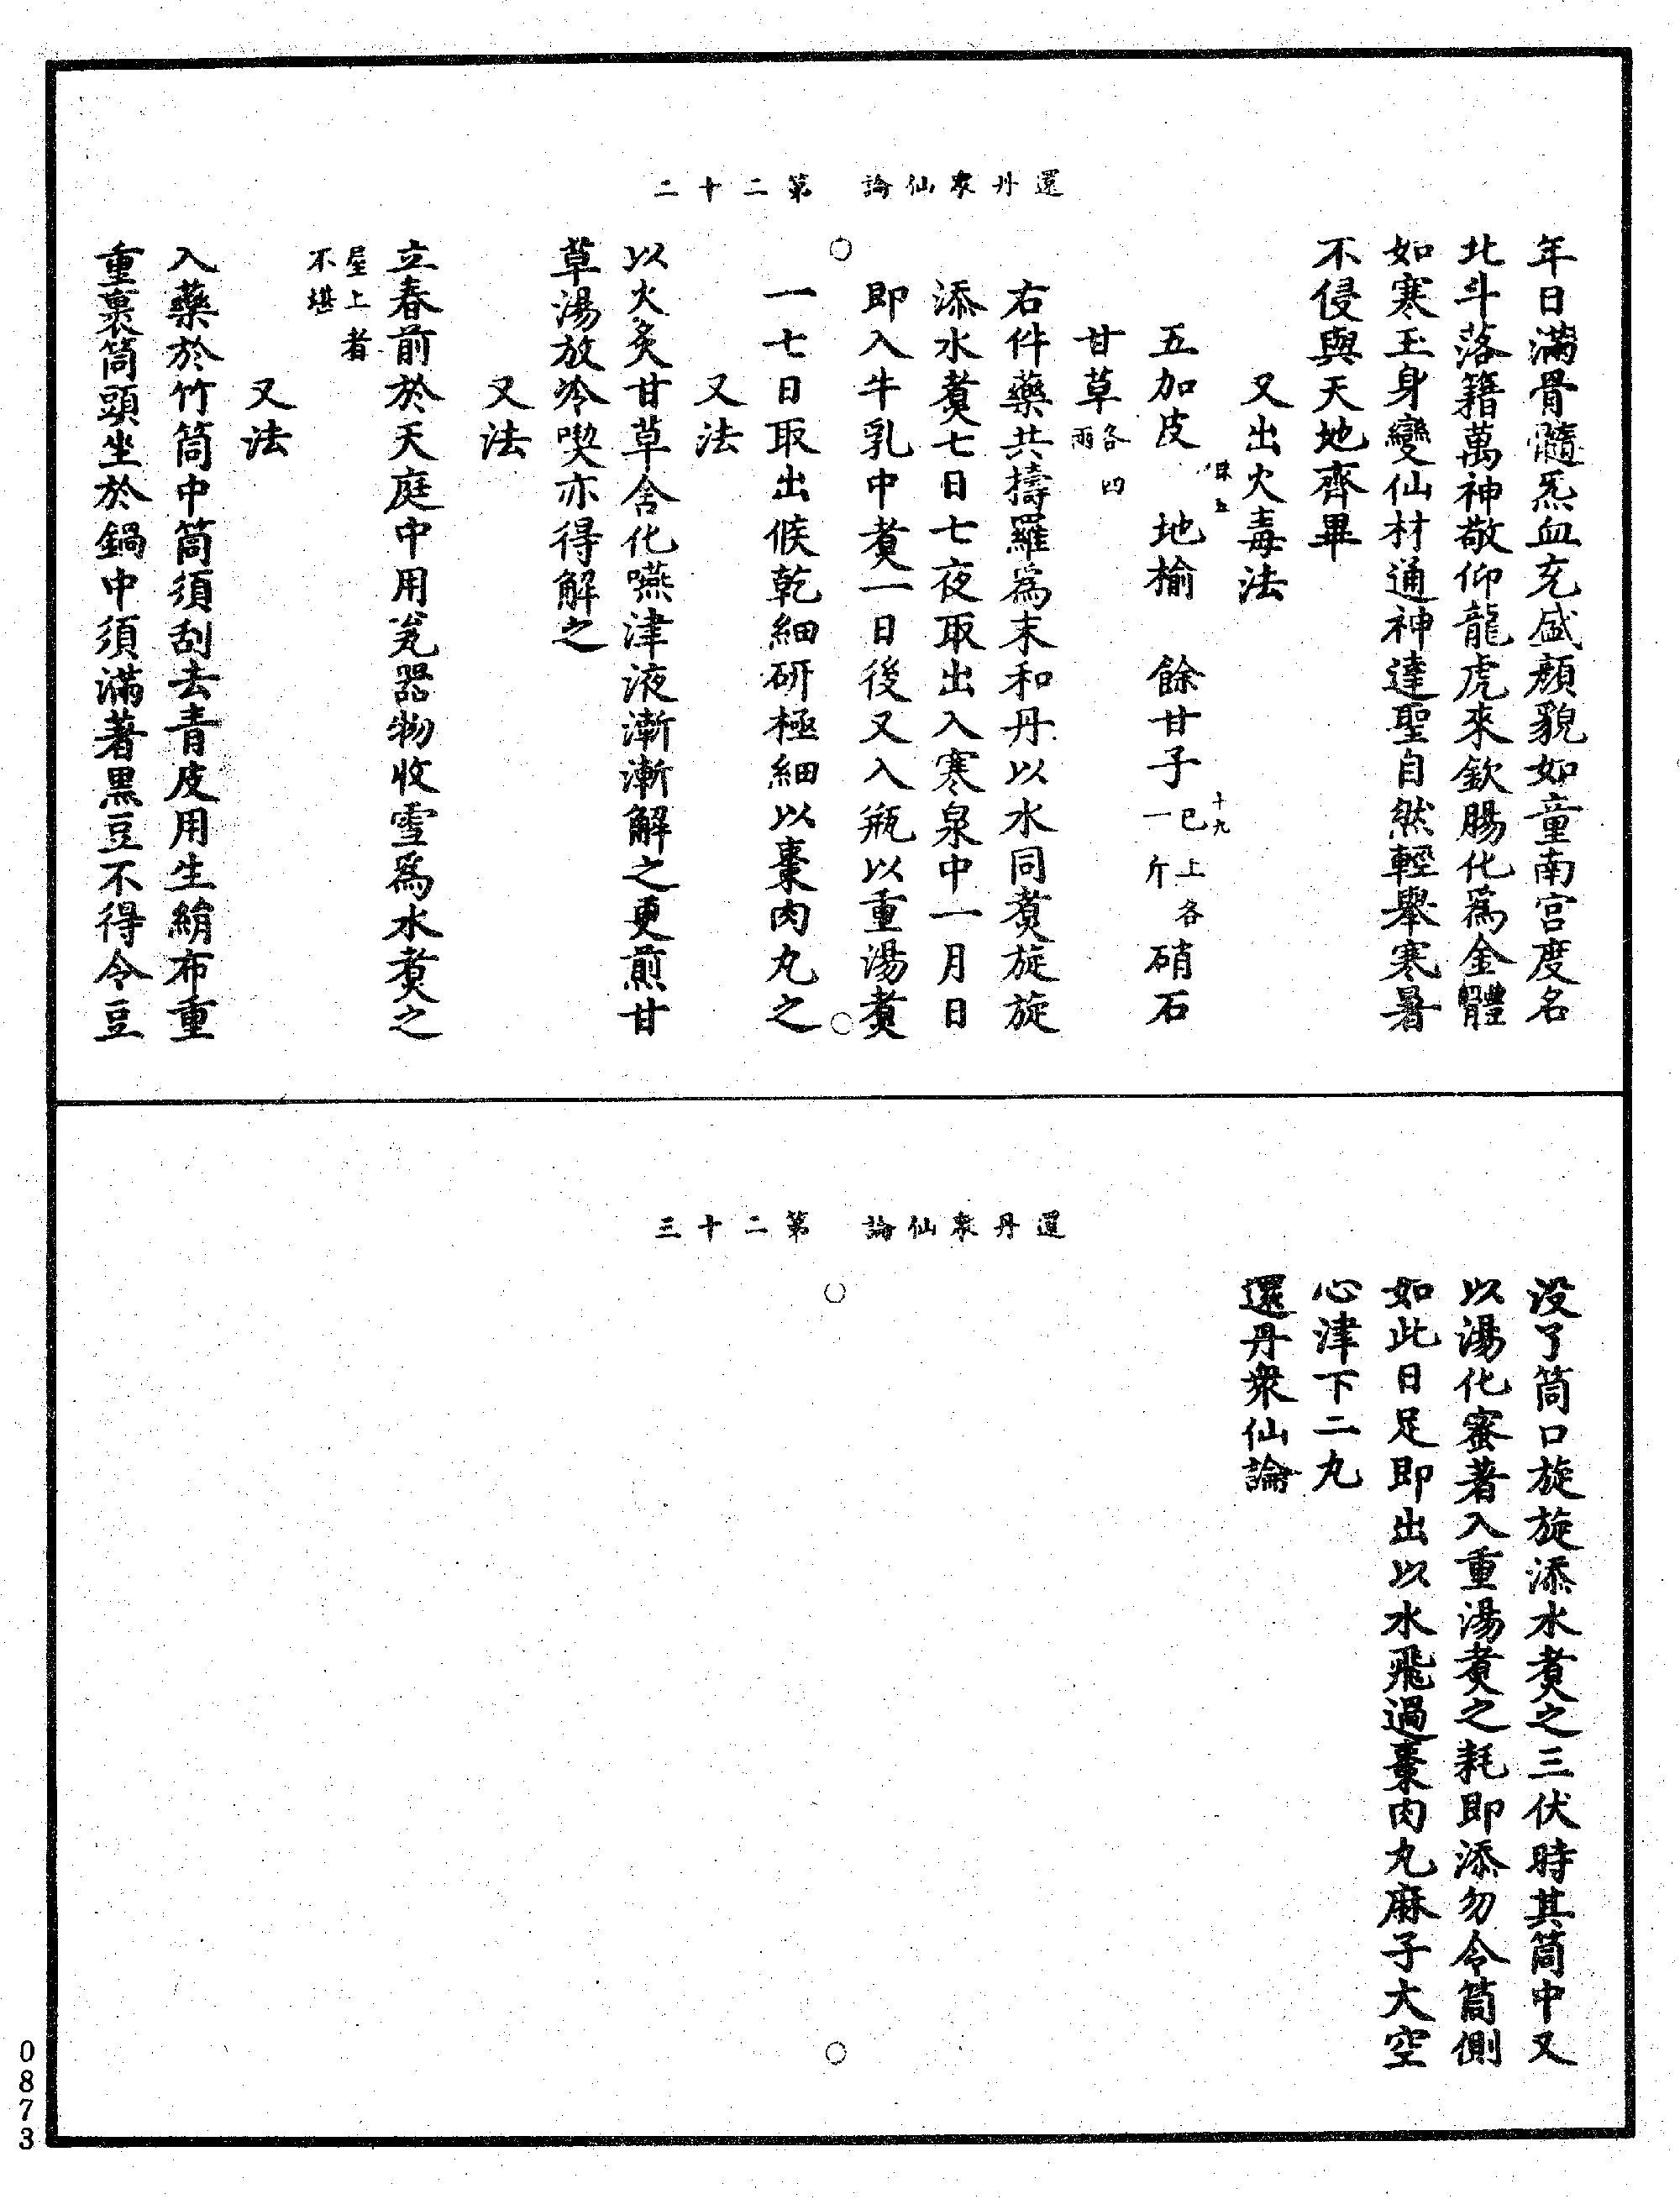 還丹衆仙論　第二十二
年日滿骨髓炁血充盛顏貌如童南宮度名
北斗落籍萬神敬仰龍虎來欽腸化爲金體
如寒玉身變仙材通神達聖自然輕舉寒暑
不侵與天地齊畢
又出火毒法
五加皮　地榆　餘甘子已上各一斤硝石
甘草各四兩
右件藥共擣羅爲末和丹以水同煑旋旋
添水煑七日七夜取出入寒泉中一月日
即入牛乳中煑一日後又入瓶以重湯煑
一七日取出候乾細研極細以棗肉丸之
又法
以火炙甘草含化嚥津液漸漸解之更煎甘
草湯放冷喫亦得解之
又法
立春前於天庭中用瓷器物收雪爲水煑之
屋上者不堪
又法
入藥於竹筒中筒須刮去青皮用生絹布重
重裹筒頭坐於鍋中須滿著黑豆不得令豆
還丹衆仙論　第二十三
没了筒口旋旋添水煑之三伏時其筒中又
以湯化蜜著入重湯煑之耗即添勿令筒側
如此日足即出以水飛過棗肉丸麻子大空
心津下二丸
還丹衆仙論
珠五
十九
0873